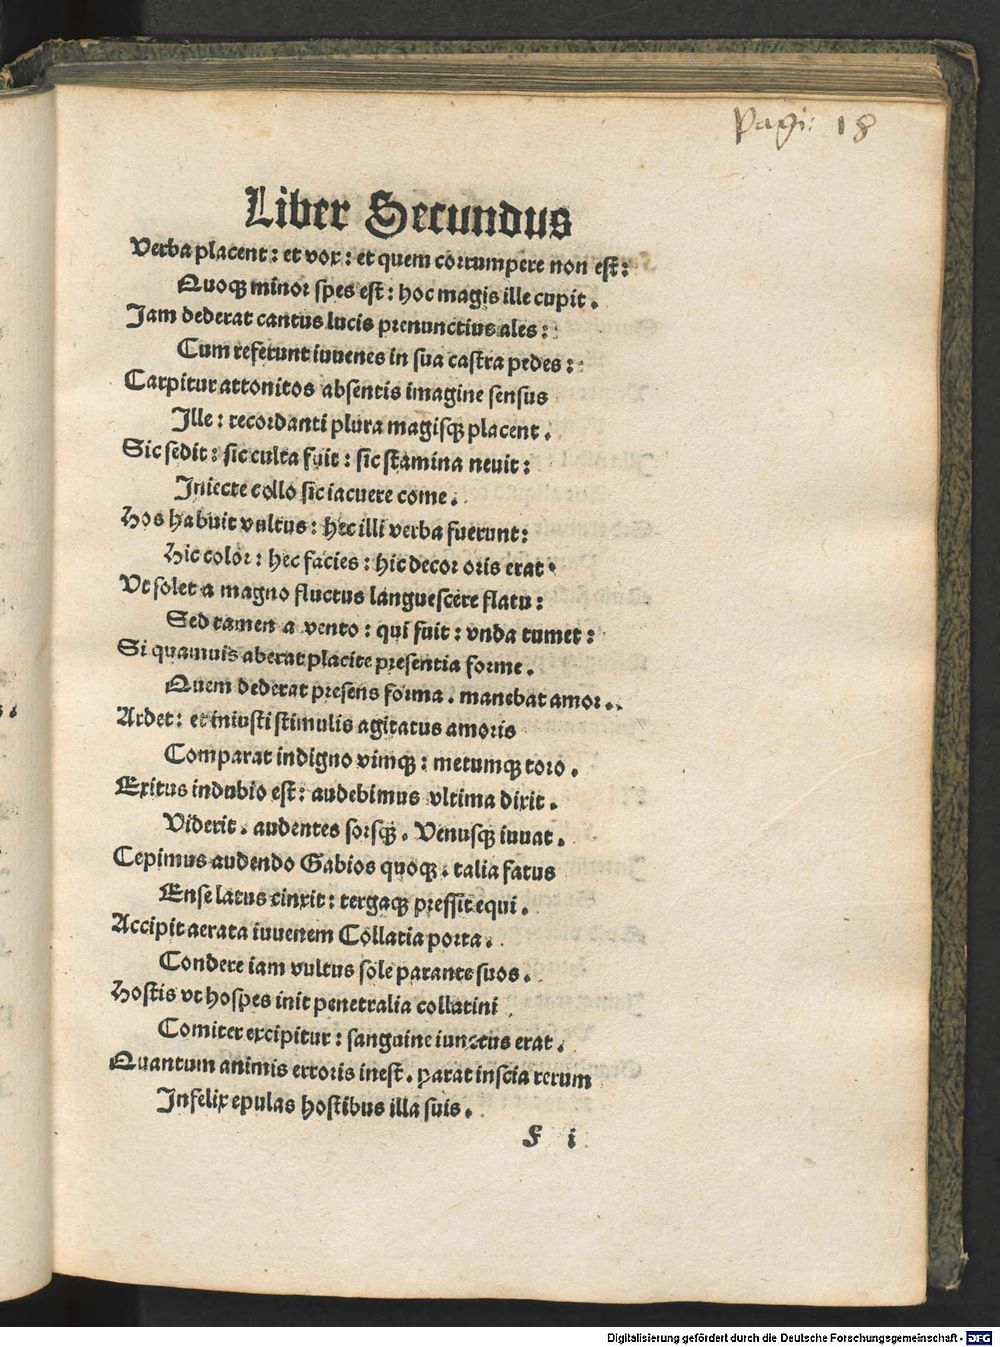 Pagi: 18
Liber Secundus
Verba placent: et vox: et quem corrumpere non est:
Quoqꝫ minor spes est: hoc magis ille cupit.
Jam dederat cantus lucis prenunctius ales:
Cum referunt iuuenes in sua castra pedes:
Carpitur attonitos absentis imagine sensus
Jlle: recordanti plura magisqꝫ placent.
Sic sedit: sic culta fuit: sic stamina neuit:
Jniecte collo sic iacuere come.
Hos habuit vultus: hec illi verba fuerunt:
Hic color: hec facies: hic decor oris erat.
Vt solet a magno fluctus languescere flatu:
Sed tamen a vento: qui fuit: vnda tumet:
Si quamuis aberat placite presentia forme.
Quem dederat presens forma. manebat amor.
Ardet: et iniusti stimulis agitatus amoris
Comparat indigno vimqꝫ: metumqꝫ toro.
Exitus in dubio est: audebimus vltima dixit.
Viderit. audentes sorsqꝫ. Venusqꝫ iuuat.
Cepimus audendo Gabios quoqꝫ. talia fatus
Ense latus cinxit: tergaqꝫ pressit equi.
Accipit aerata iuuenem Collatia porta.
Condere iam vultus sole parante suos.
Hostis vt hospes init penetralia collatini
Comiter excipitur: sanguine iunctus erat.
Quantum animis erroris inest. parat inscia rerum
Jnfelix epulas hostibus illa suis.
F i
Digitalisierung gefördert durch die Deutsche Forschungsgemeinschaft - DFG